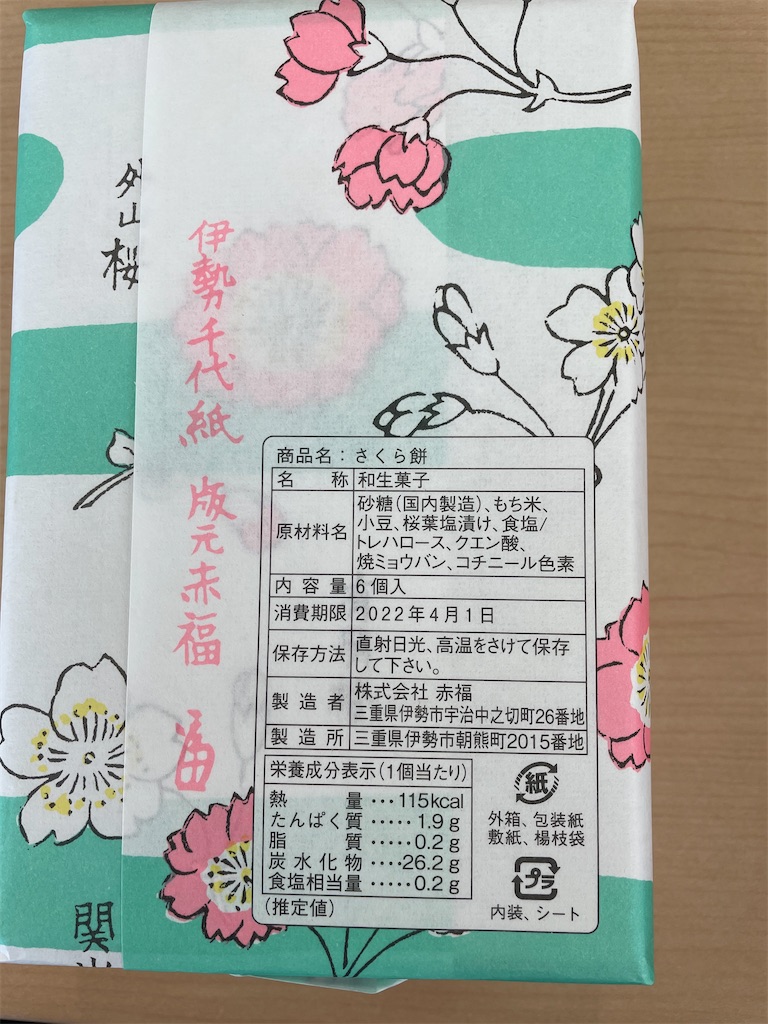 外山桜
伊勢千代紙 版元赤福
商品名：さくら餅
名 称 和生菓子
原材料名 砂糖（国内製造）、もち米、
小豆、桜葉塩漬け、食塩/
トレハロース、クエン酸、
焼ミョウバン、コチニール色素
内容量 6個入
消費期限 2022年4月1日
保存方法 直射日光、高温をさけて保存
して下さい。
製造者 株式会社 赤福
三重県伊勢市宇治中之切町26番地
製造所 三重県伊勢市朝熊町2015番地
栄養成分表示（1個当たり）
熱 量…115kcal
たんぱく質……1.9g
脂 質……0.2g
炭水化物……26.2g
食塩相当量……0.2g
（推定値）
紙
外箱、包装紙
敷紙、楊枝袋
プラ
内装、シート
関